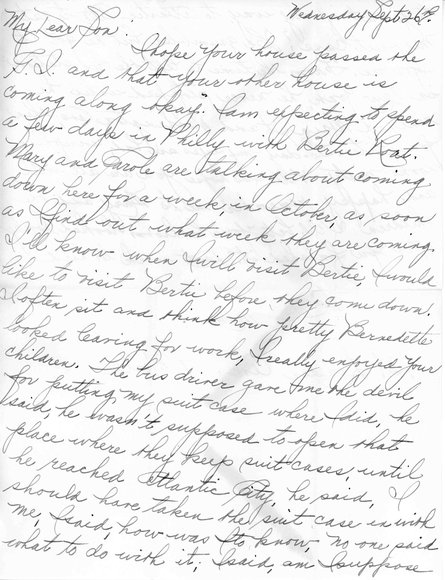 Wednesday, Sept 26th.
My Dear Son:
I hope your house passed the
G.I. and that your other house is
coming along okay. I am expecting to spend
a few days in Philly with Bertie Roat.
Mary and Carole are talking about coming
down here for a week, in October, as soon
as I find out what week they are coming
I'll know when I will visit Bertie, I would
like to visit Bertie before they come down.
I often sit and think how pretty Bernedette
looked leaving for work, I really enjoyed your
children. The bus driver gave me the devil
for putting my suit case where I did, he
said, he wasn't supposed to open that
place where they keep suit cases, until
he reached Atlantic City, he said, I
should have taken the suit case in with
me, I said, how was I to know, no one said
what to do with it; I said, am I suppose